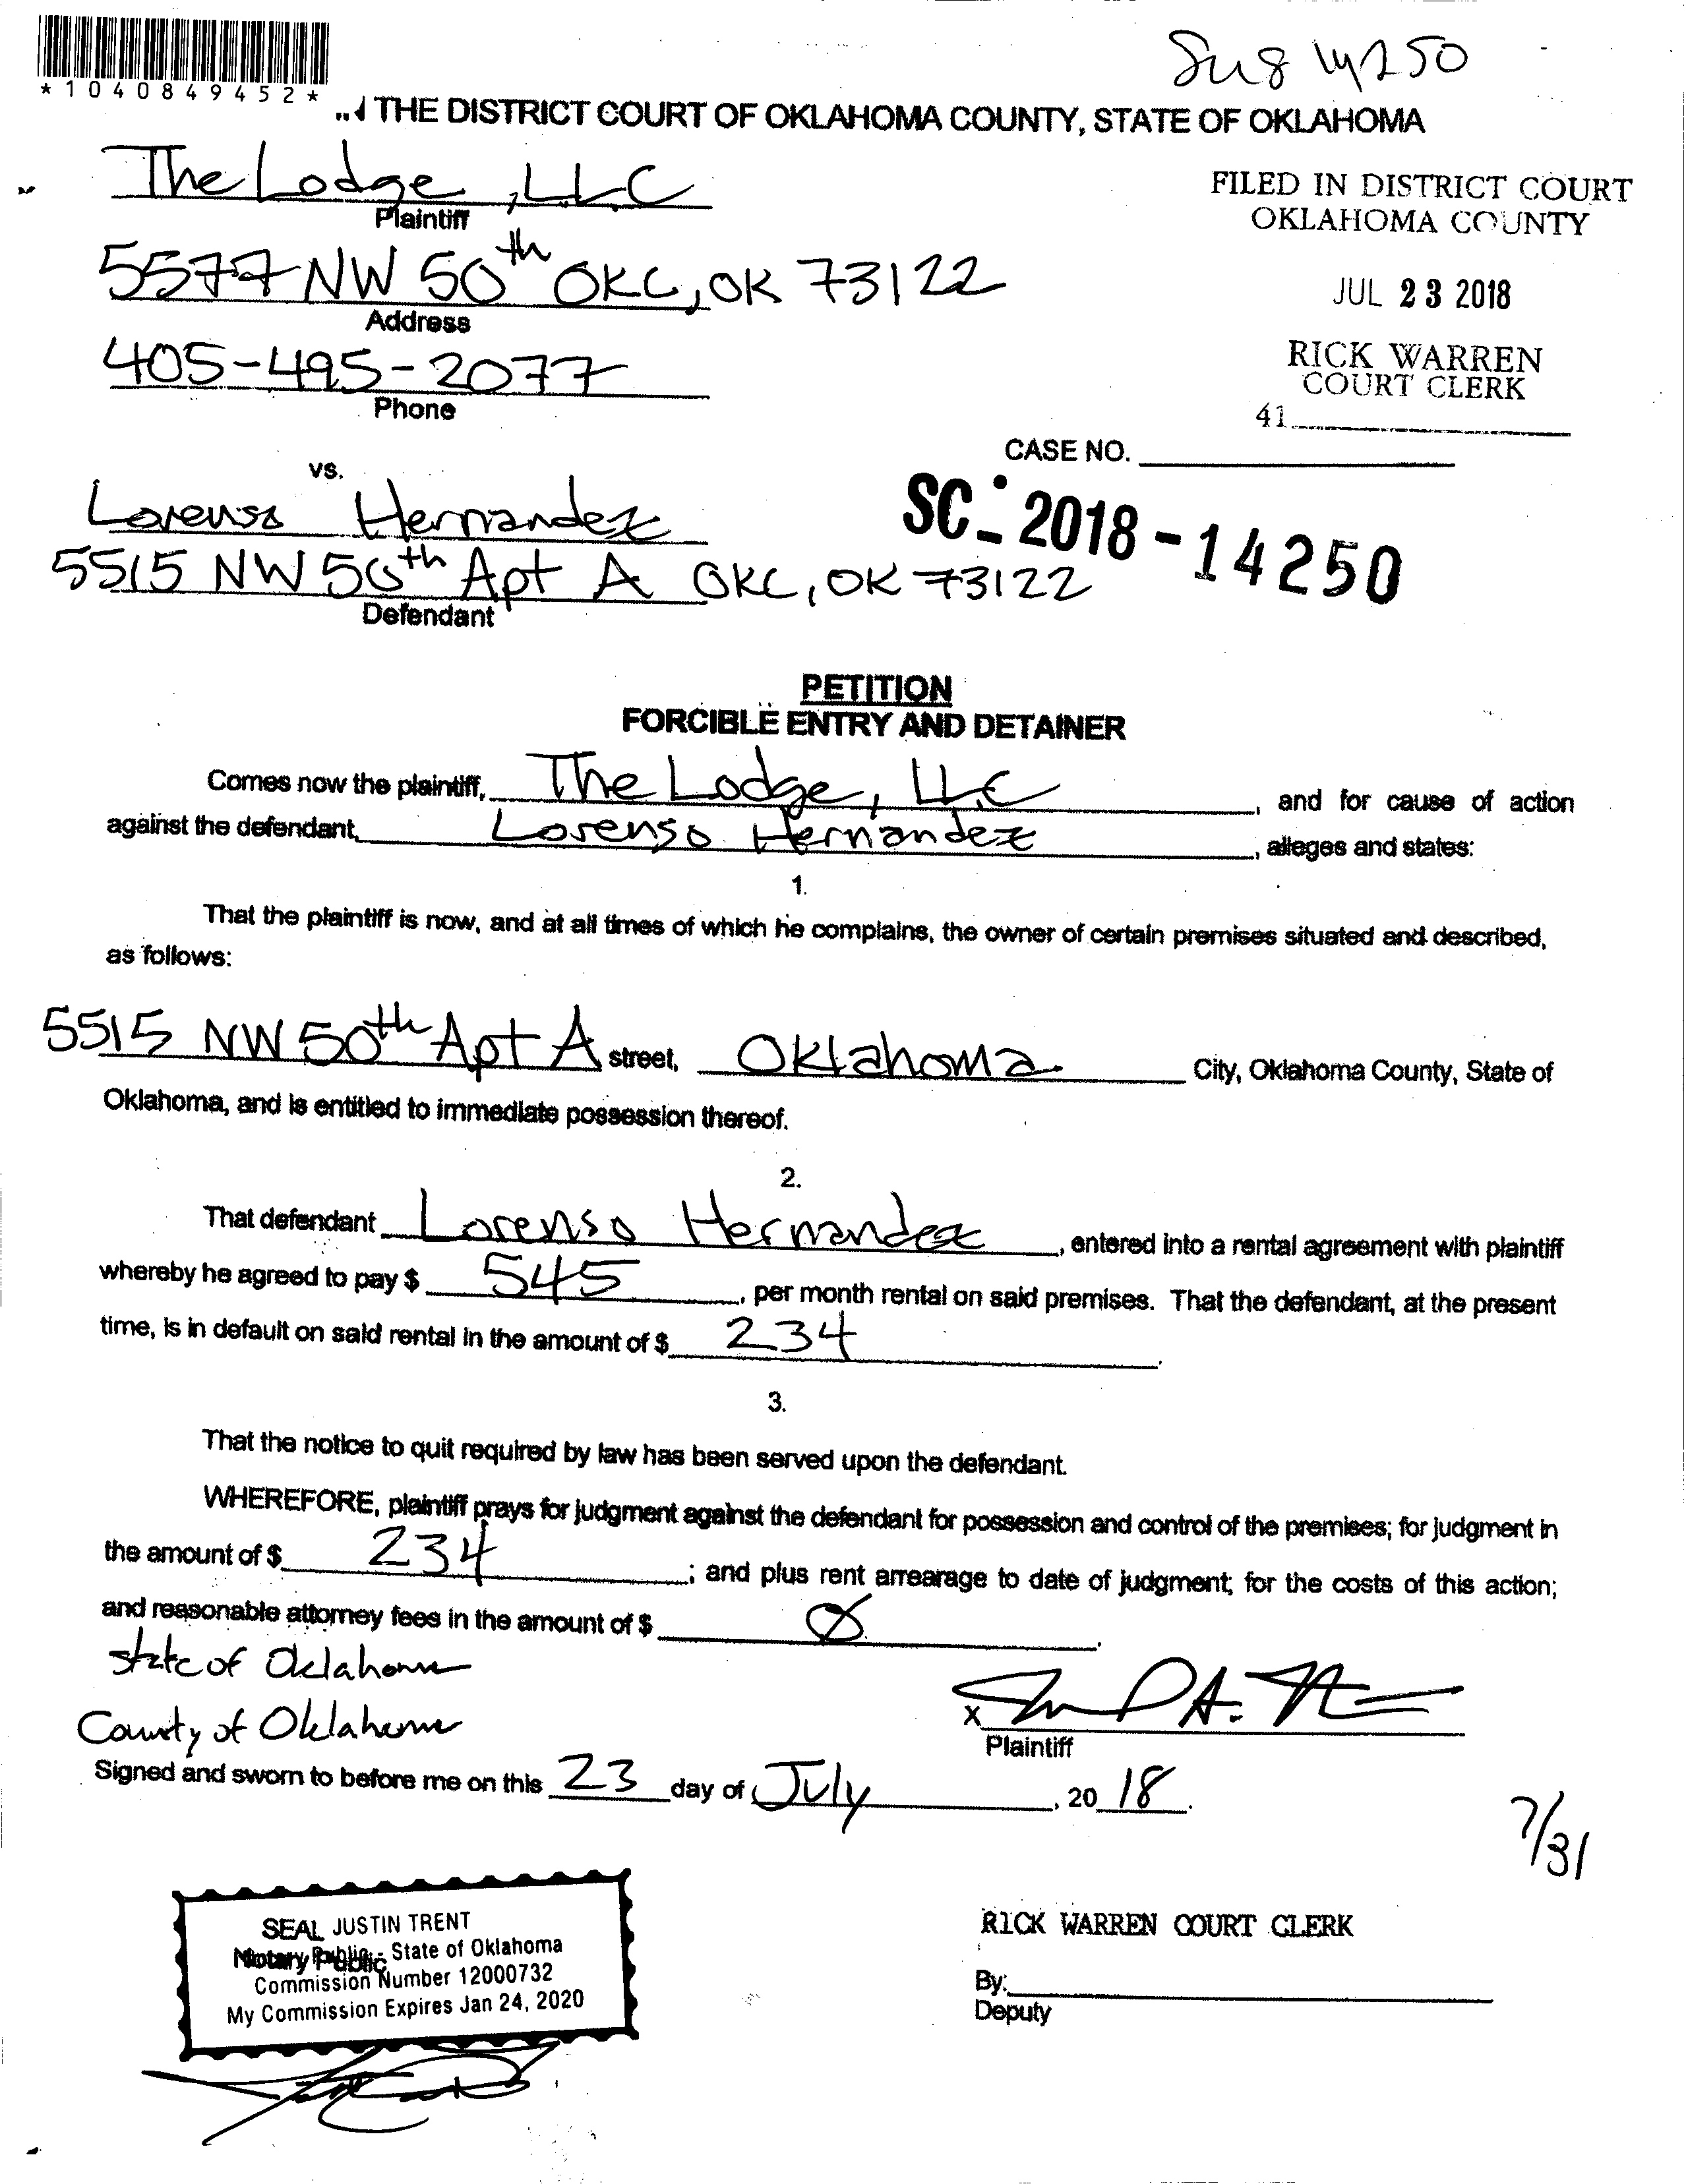 *1040849452*
THE DISTRICT COURT OF OKLAHOMA COUNTY, STATE OF OKLAHOMA
The Lodge, LLC
Plaintiff
5577 NW 50th OKC, OK 73122
Address
405-495-2077
Phone
FILED IN DISTRICT COURT
OKLAHOMA COUNTY
JUL 23 2018
RICK WARREN
COURT CLERK
41
CASE NO.
SC-2018-14250
vs.
Lorenso Hernandez
5515 NW 50th Apt A OKC, OK 73122
Defendant
PETITION
FORCIBLE ENTRY AND DETAINER
Comes now the plaintiff, The Lodge, LLC, and for cause of action
against the defendant, Lorenso Hernandez, alleges and states:
1.
That the plaintiff is now, and at all times of which he complains, the owner of certain premises situated and described,
as follows:
5515 NW 50th Apt A street, Oklahoma City, Oklahoma County, State of
Oklahoma, and is entitled to immediate possession thereof.
2.
That defendant Lorenso Hernandez, entered into a rental agreement with plaintiff
whereby he agreed to pay $ 545, per month rental on said premises. That the defendant, at the present
time, is in default on said rental in the amount of $ 234.
3.
That the notice to quit required by law has been served upon the defendant.
WHEREFORE, plaintiff prays for judgment against the defendant for possession and control of the premises; for judgment in
the amount of $ 234; and plus rent arrearage to date of judgment; for the costs of this action;
and reasonable attorney fees in the amount of $ Ø.
State of Oklahoma
County of Oklahoma
X
Plaintiff
Signed and sworn to before me on this 23 day of July, 2018.
7/31
SEAL JUSTIN TRENT
Notary Public - State of Oklahoma
Notary Public
Commission Number 12000732
My Commission Expires Jan 24, 2020
RICK WARREN COURT CLERK
By:
Deputy